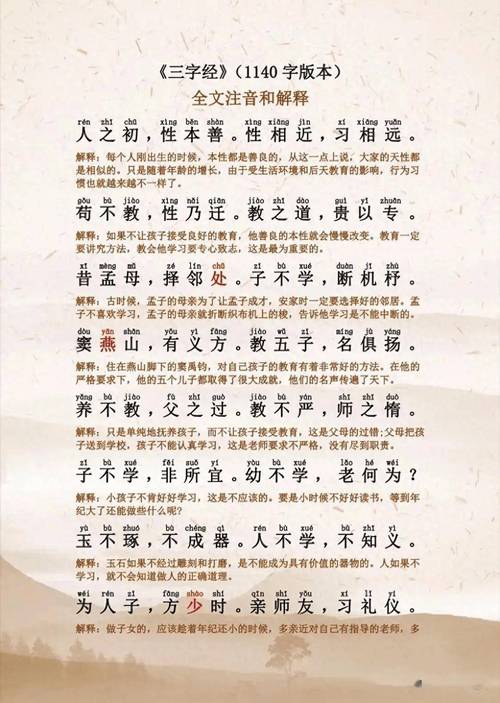 《三字经》（1140字版本）
全文注音和解释
rén zhī chū xìng běn shàn xìng xiāng jìn xí xiāng yuǎn
人之初，性本善。性相近，习相远。
解释：每个人刚出生的时候，本性都是善良的，从这一点上说，大家的天性都
是相似的。只是随着年龄的增长，由于受生活环境和后天教育的影响，行为习
惯也就越来越不一样了。
gǒu bù jiào xìng nǎi qiān jiào zhī dào guì yǐ zhuān
苟不教，性乃迁。教之道，贵以专。
解释：如果不让孩子接受良好的教育，他善良的本性就会慢慢改变。教育一定
要讲究方法，教会他学习要专心致志，这是最为重要的。
xī mèng mǔ zé lín chǔ zǐ bù xué duàn jī zhù
昔孟母，择邻处。子不学，断机杼。
解释：古时候，孟子的母亲为了让孟子成才，安家时一定要选择好的邻居。孟
子不喜欢学习，孟子的母亲就折断织布机上的梭，告诉他学习是不能中断的。
dòu yān shān yǒu yì fāng jiào wǔ zǐ míng jù yáng
窦燕山，有义方。教五子，名俱扬。
解释：住在燕山脚下的窦禹钧，对自己孩子的教育有着非常好的方法。在他的
严格要求下，他的五个儿子都取得了很大成就，他们的名声传遍了天下。
yǎng bù jiào fù zhī guò jiào bù yán shī zhī duò
养不教，父之过。教不严，师之惰。
解释：只是单纯地抚养孩子，而不让孩子接受教育，这是父母的过错;父母把孩
子送到学校，孩子不能认真学习，这是老师要求不严格，没有尽到职责。
zǐ bù xué fēi suǒ yí yòu bù xué lǎo hé wéi
子不学，非所宜。幼不学，老何为？
解释：小孩子不肯好好学习，这是不应该的。要是小时候不好好读书，等到年
纪大了还能做些什么呢?
yù bù zhuó bù chéng qì rén bù xué bù zhī yì
玉不琢，不成器。人不学，不知义。
解释：玉石如果不经过雕刻和打磨，是不能成为具有价值的器物的。人如果不
学习，就不会知道做人的正确道理。
wéi rén zǐ fāng shào shí qīn shī yǒu xí lǐ yí
为人子，方少时。亲师友，习礼仪。
解释：做子女的，应该趁着年纪还小的时候，多亲近对自己有指导的老师，多